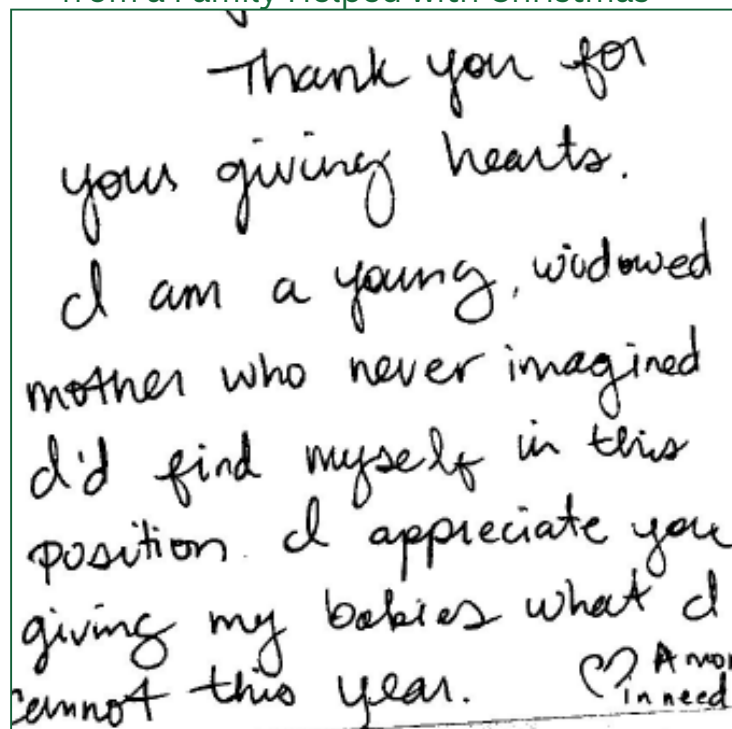 from a Family Helped with Christmas
Thank you for
your giving hearts.
I am a young, widowed
mother who never imagined
I'd find myself in this
position. I appreciate you
giving my babies what I
cannot this year. ♡ A mom
in need